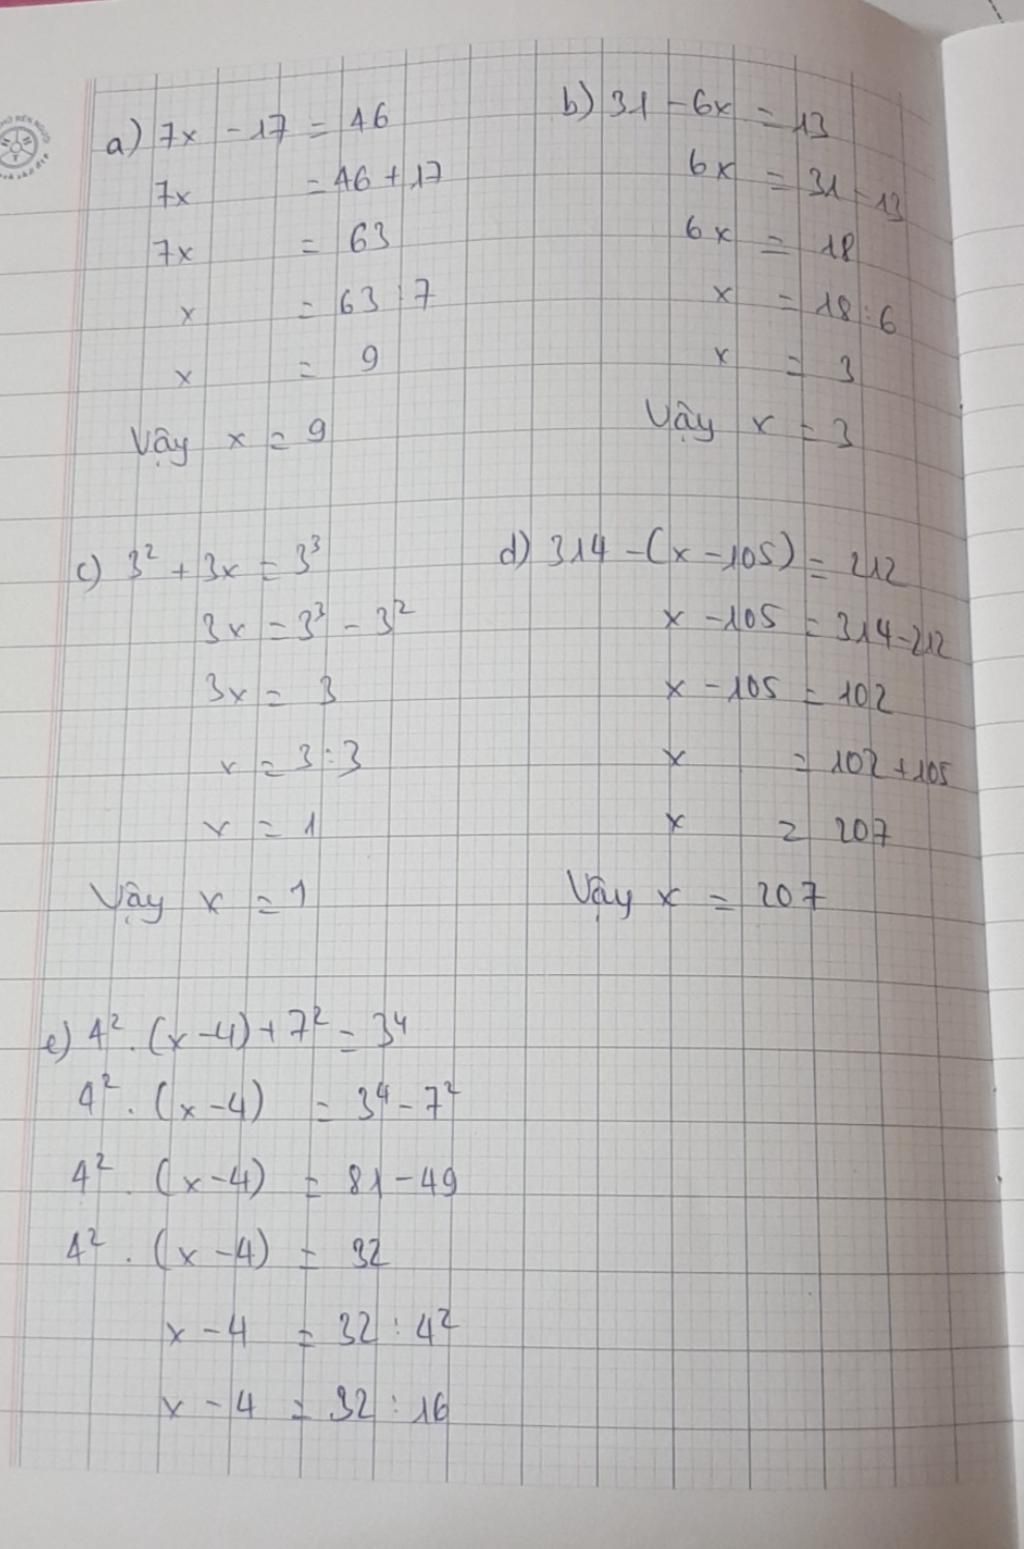 a) 7x - 17 = 46
7x = 46 + 17
7x = 63
x = 63 : 7
x = 9
Vậy x = 9
b) 31 - 6x = 13
6x = 31 - 13
6x = 18
x = 18 : 6
x = 3
Vậy x = 3
c) 3² + 3x = 3³
3x = 3³ - 3²
3x = 3
x = 3 : 3
x = 1
Vậy x = 1
d) 314 - (x - 105) = 212
x - 105 = 314 - 212
x - 105 = 102
x = 102 + 105
x = 207
Vậy x = 207
e) 4² . (x - 4) + 7² = 3⁴
4² . (x - 4) = 3⁴ - 7²
4² . (x - 4) = 81 - 49
4² . (x - 4) = 32
x - 4 = 32 : 4²
x - 4 = 32 : 16